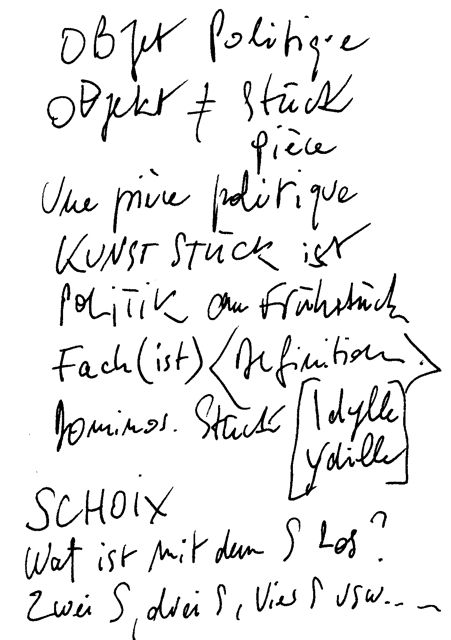 OBJet Politique
OBjekt ≠ Stück
pièce
Une pièce politique
KUNST STÜCK ist
POLITIK am Frühstück
Fach(ist) <Definition.>
Dominos. Stück [Idylle
ydille]
SCHOIX
Wat ist mit dem S Los?
Zwei S, drei S, Vier S usw...